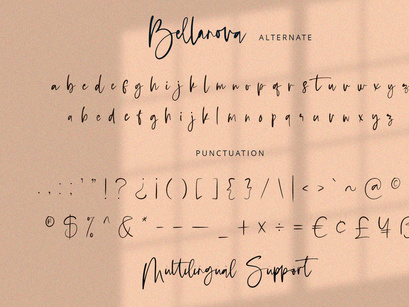 Bellanova ALTERNATE
a b c d e f g h i j k l m n o p q r s t u v w x y z
a b c d e f g h i j k l m n o p q r u v w x y z
PUNCTUATION
. , : ; ' " ! ? ¿ ¡ ( ) [ ] { } / \ | < > ` ~ @ ©
® $ % ^ & * - – — _ + × ÷ = € c £ ¥
Multilingual Support